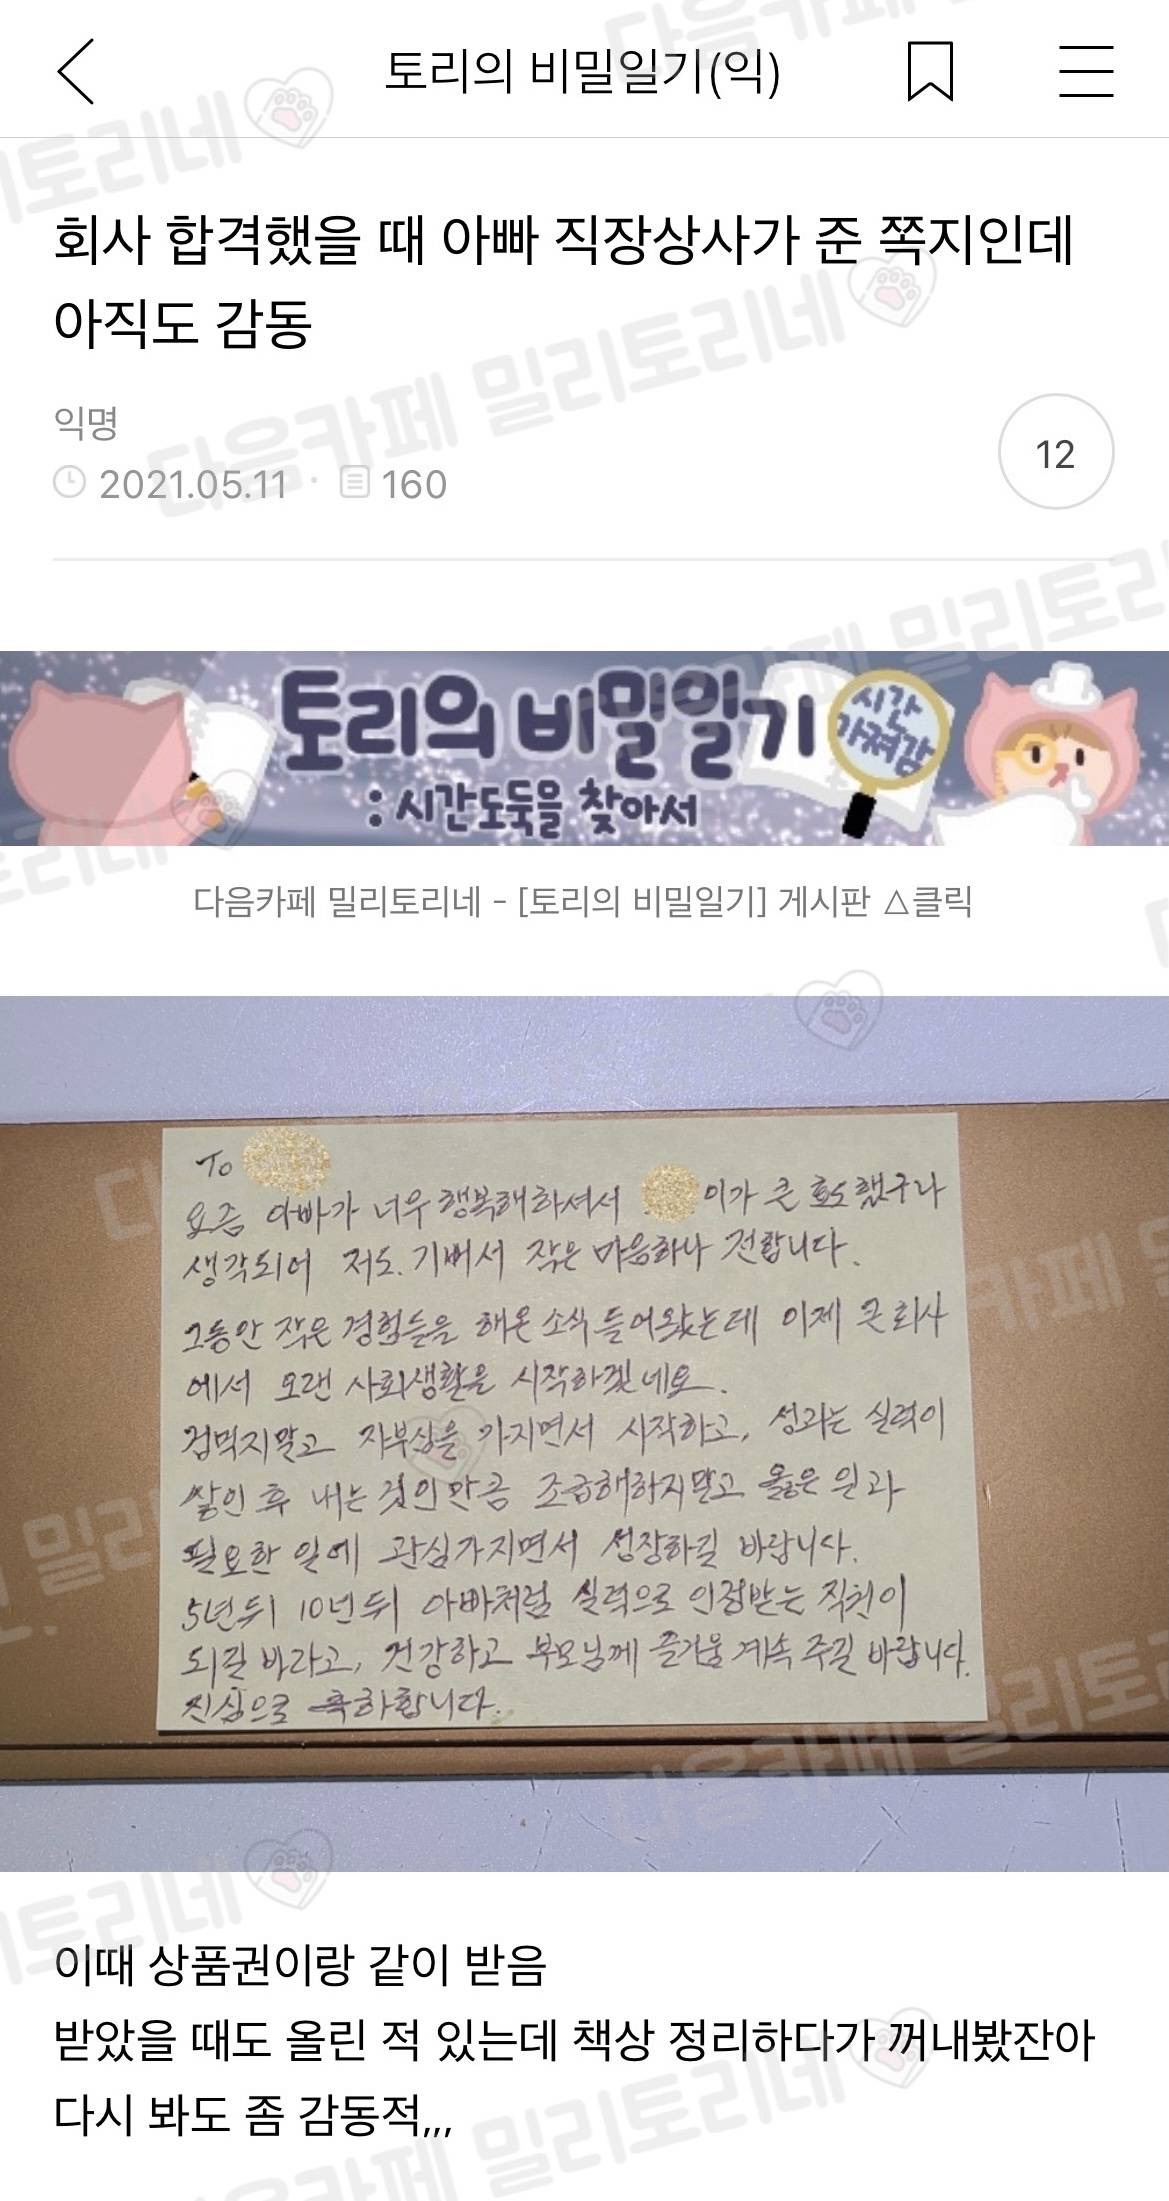 토리의 비밀일기(익)
회사 합격했을 때 아빠 직장상사가 준 쪽지인데
아직도 감동
익명
2021.05.11 · 160
12
토리의 비밀일기
시간
가져감
: 시간도둑을 찾아서
다음카페 밀리토리네 - [토리의 비밀일기] 게시판 △클릭
To
요즘 아빠가 너무 행복해하셔서 이가 큰 효도했구나
생각되어 저도. 기뻐서 작은 마음하나 전합니다.
그동안 작은 경험들을 해온 소식 들어왔는데 이제 큰 회사
에서 오랜 사회생활을 시작하겠네요.
겁먹지말고 자부심을 가지면서 시작하고, 성과는 실력이
쌓인 후 내는 것인만큼 조급해하지말고 옳은 일과
필요한 일에 관심가지면서 성장하길 바랍니다.
5년뒤 10년뒤 아빠처럼 실력으로 인정받는 직원이
되길 바라고, 건강하고 부모님께 즐거움 계속 주길 바랍니다.
진심으로 축하합니다.
이때 상품권이랑 같이 받음
받았을 때도 올린 적 있는데 책상 정리하다가 꺼내봤잔아
다시 봐도 좀 감동적,,,
다음카페 밀리토리네